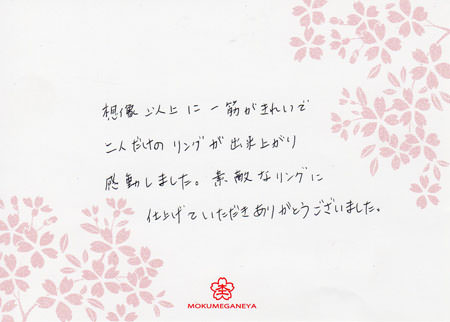 想像以上に一筋がきれいで
二人だけのリングが出来上がり
感動しました。素敵なリングに
仕上げていただきありがとうございました。
MOKUMEGANEYA